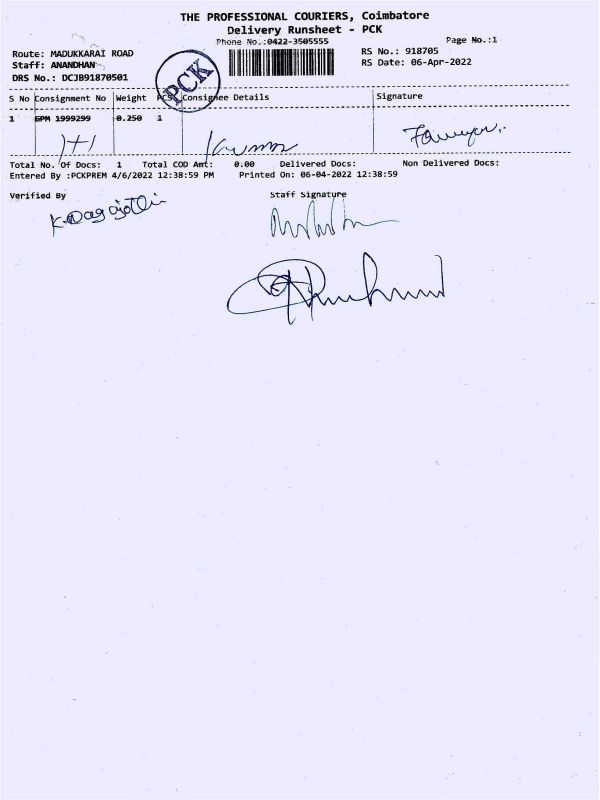 THE PROFESSIONAL COURIERS, Coimbatore
Delivery Runsheet - PCK
Phone No.:0422-3505555
Page No.:1
Route: MADUKKARAI ROAD
RS No.: 918705
Staff: ANANDHAN
RS Date: 06-Apr-2022
DRS No.: DCJB91870501
PCK
S No Consignment No Weight PCS Consignee Details Signature
1 GPM 1999299 0.250 1
Total No. Of Docs: 1 Total COD Amt: 0.00 Delivered Docs: Non Delivered Docs:
Entered By :PCKPREM 4/6/2022 12:38:59 PM Printed On: 06-04-2022 12:38:59
Verified By Staff Signature